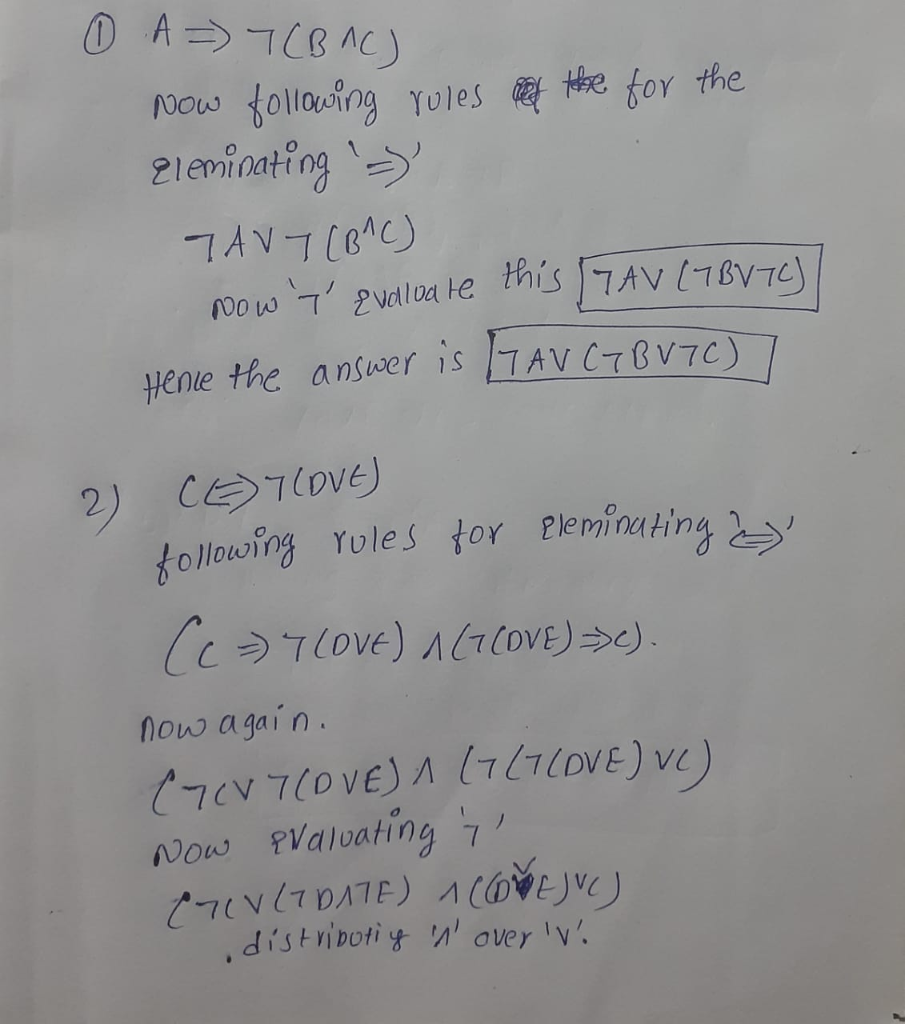 ① A ⇒ ¬(B∧C)
Now following rules the for the
Eleminating '⇒'
¬A∨¬(B∧C)
Now '¬' Evaluate this ¬A∨(¬B∨¬C)
Hence the answer is ¬A∨(¬B∨¬C)
2) C⇔¬(D∨E)
following rules for Eleminating '⇔'
(C⇒¬(D∨E) ∧(¬(D∨E)⇒C).
now again.
(¬C∨¬(D∨E) ∧ (¬(¬(D∨E)∨C)
Now Evaluating '¬'
(¬C∨(¬D∧¬E) ∧((D∨E)∨C)
. distributig '∧' over '∨'.